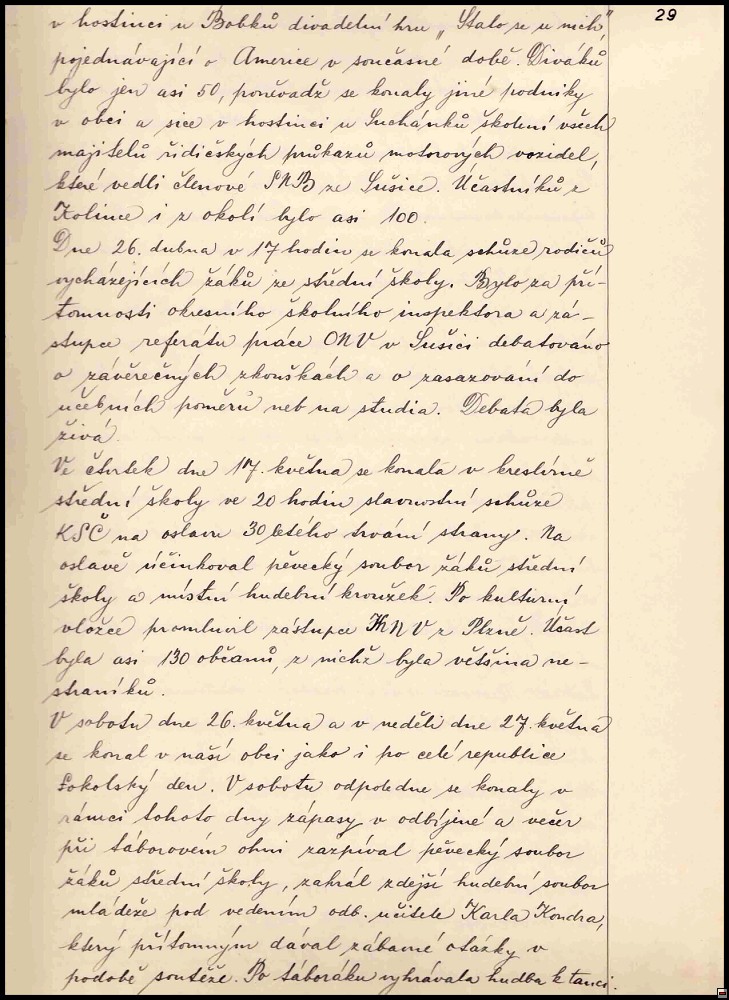 29
v hostinci u Bobků divadelní hru „Stalo se u nich,"
pojednávající o Americe v současné době. Diváků
bylo jen asi 50, poněvadž se konaly jiné podniky
v obci a sice v hostinci u Suchánků školení všech
majitelů řidičských průkazů motorových vozidel,
které vedli členové SNB ze Sušice. Účastníků z
Kolince i z okolí bylo asi 100.
Dne 26. dubna v 17 hodin se konala schůze rodičů
vycházejících žáků ze střední školy. Bylo za pří-
tomnosti okresního školního inspektora a zá-
stupce referátu práce ONV v Sušici debatováno
o závěrečných zkouškách a o zasazování do
učebních poměrů neb na studia. Debata byla
živá.
Ve čtvrtek dne 17. května se konala v kreslírně
střední školy ve 20 hodin slavnostní schůze
KSČ na oslavu 30letého trvání strany. Na
oslavě účinkoval pěvecký soubor žáků střední
školy a místní hudební kroužek. Po kulturní
vložce promluvil zástupce KNV z Plzně. Účast
byla asi 130 občanů, z nichž byla většina ne-
straníků.
V sobotu dne 26. května a v neděli dne 27. května
se konal v naší obci jako i po celé republice
Sokolský den. V sobotu odpoledne se konaly v
rámci tohoto dny zápasy v odbíjené a večer
při táborovém ohni zazpíval pěvecký soubor
žáků střední školy, zahrál zdejší hudební soubor
mládeže pod vedením odb. učitele Karla Kondra,
který přítomným dával zábavné otázky v
podobě soutěže. Po táboráku vyhrávala hudba k tanci.